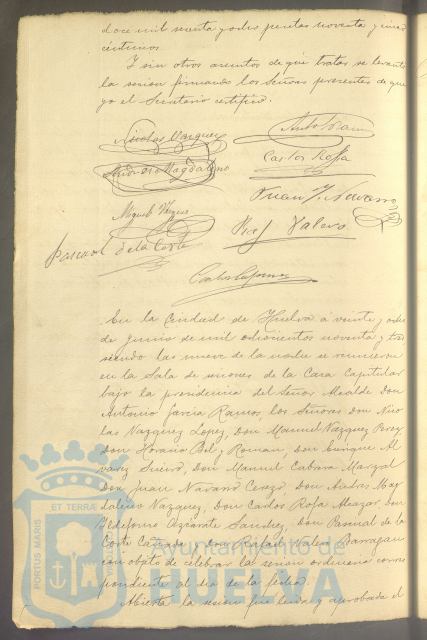 doce mil sesenta y ocho pesetas noventa y cinco
céntimos.
Y sin otros asuntos de que tratar se levantó
la sesion firmando los Señores presentes de que
yo el Secretario certifico.
Nicolas Vazquez
Carlos Rofa
Andres Magdaleno
Juan Navarro
Miguel
Raf Valero
Pascual de la Corte
En la Ciudad de Huelva á veinte y ocho
de Junio de mil ochocientos noventa y tres
siendo las nueve de la noche se reunieron
en la Sala de sesiones de la Casa Capitular
bajo la presidencia del Señor Alcalde Don
Antonio Garcia Ramos, los Señores don Nico
las Vazquez Lopez, Don Manuel Vazquez Perez
don Horacio Bel y Roman, don Enrique Al
varez Sueiro, Don Manuel Cabara Marzal
Don Juan Navarro Cerezo, Don Andres Mag
daleno Vazquez, Don Carlos Rofa Alcazar, Don
Ildefonso Azcarate Sanchez, Don Pascual de la
Corte Cañado y Don Rafael Valero Barragan
con objeto de celebrar la sesion ordinaria corres
pondiente al dia de la fecha.
Abierta la sesion fué leida y aprobada el
PORTUS MARIS ET TERRÆ
Ayuntamiento de
HUELVA